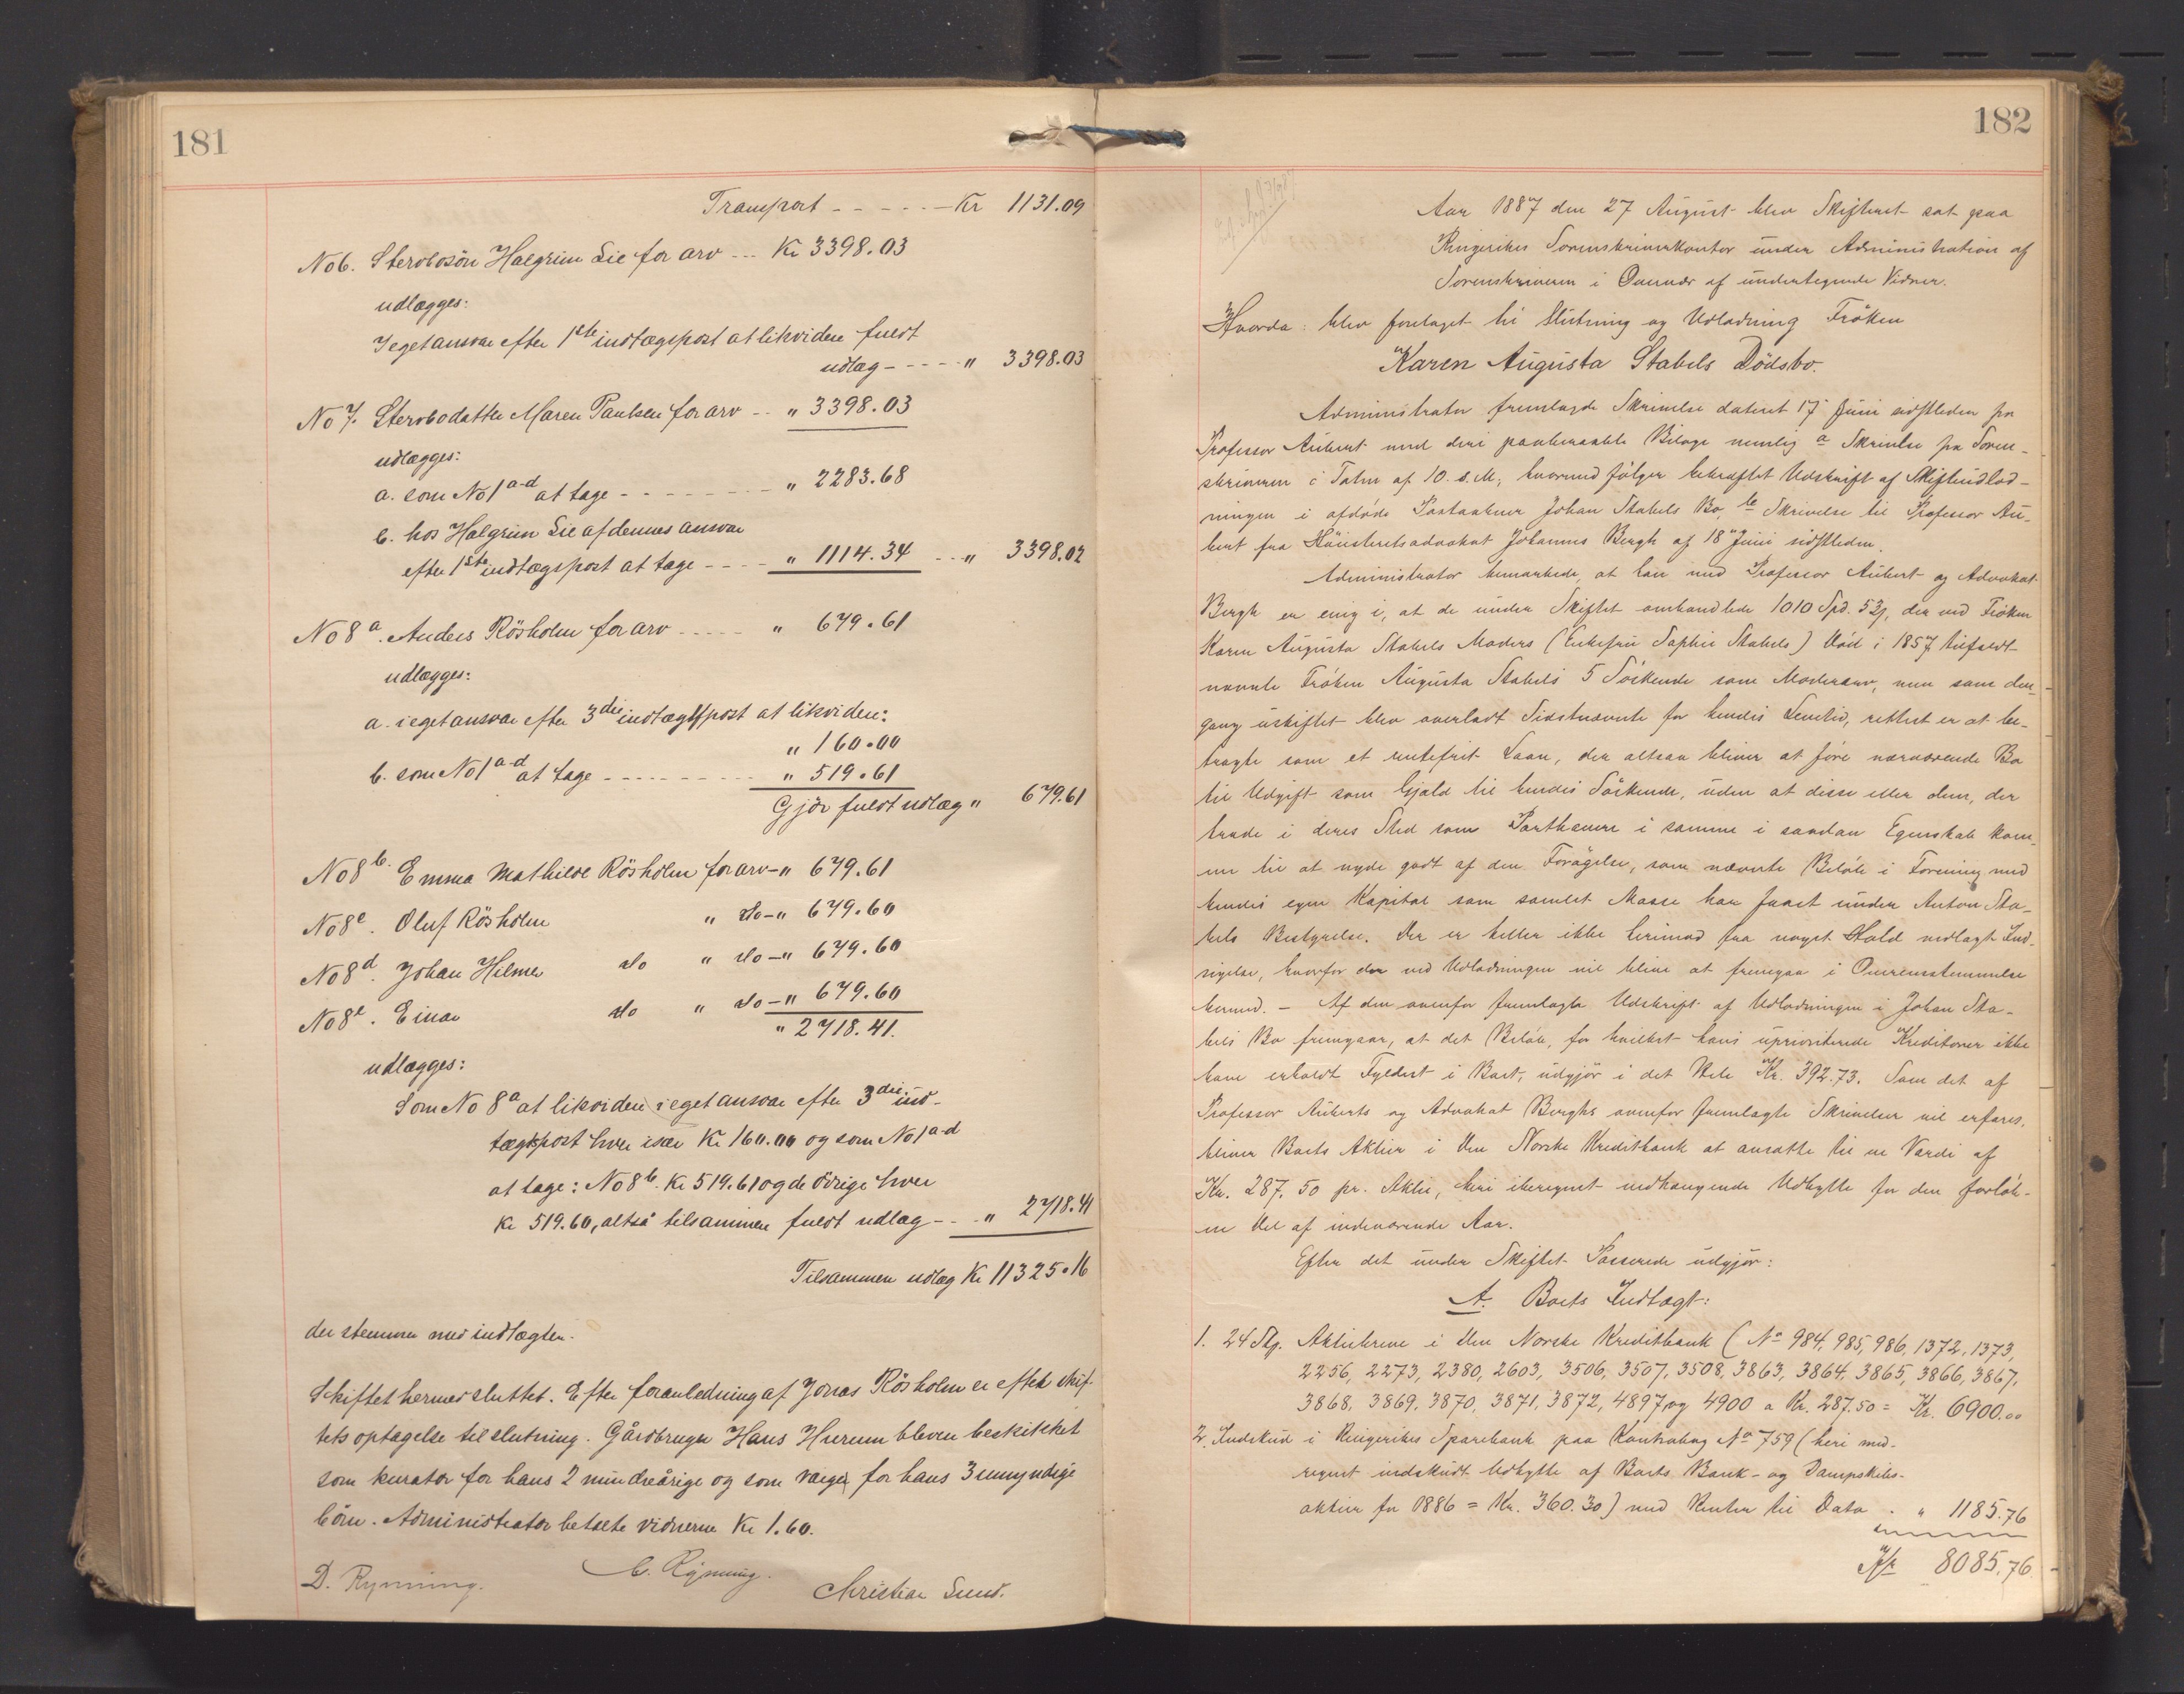 181
Transport - - - - - - Kr 1131.09
No 6. Sterbosön Halgrim Lie for arv --- Kr 3398.03
udlægges:
I eget ansvar efter 1ste indtægspost at likvidere fuldt
udlæg - - - - - " 3398.03
No 7. Sterbodatter Maren Paulsen for arv -- " 3398.03
udlægges:
a. som No 1 a-d at tage - - - - - - - - - " 2283.68
b. hos Halgrim Lie af dennes ansvar
efter 1ste indtægspost at tage - - - - " 1114.34 --- " 3398.02
No 8 a. Anders Rösholm for arv - - - - - " 679.61
udlægges:
a. i eget ansvar efter 3die indtægtspost at likvidere:
" 160.00
b. som No 1 a-d at tage - - - - - - - - - - " 519.61
Gjör fuldt udlæg " 679.61
No 8 b. Emma Mathilde Rösholm for arv - " 679.61
No 8 c. Oluf Rösholm " do - " 679.60
No 8 d. Johan Hilmer do " do - " 679.60
No 8 e. Einar do " do - " 679.60
" 2718.41.
udlægges:
Som No 8 a at likvidere i eget ansvar efter 3die ind-
tægtspost hver især Kr 160.00 og som No 1 a-d
at tage: No 8 b. Kr 519.61 og de övrige hver
Kr 519.60, altså tilsammen fuldt udlæg - - - " 2718.41
Tilsammen udlæg Kr 11325.16
der stemmer med indtægten.
Skiftet hermed sluttet. Efter foranledning af Jonas Rösholm er efter skif-
tets optagelse til slutning. Gårdbruger Hans Hurum bleven beskikket
som kurator for hans 2 mindreårige og som værge for hans 3 umyndige
börn. Administrator betalte vidnerne Kr 1.60.
D. Rynning. C. Rynning. Christian Lund.
182
Aar 1887 den 27 August blev Skifteret sat paa
Ringerikes Sorenskriverkontor under Administration af
Sorenskriveren i Overvær af undertegnede Vidner.
Hvorda: blev foretaget til Slutning og Udlodning Fröken
Karen Augusta Stabels Dödsbo.
Administrator fremlagde Skrivelse dateret 17 Juni sidstleden fra
Professor Aubert med deri paaberaabte Bilage nemlig a Skrivelse fra Soren-
skriveren i Toten af 10. s. M., hvormed fölger bekræftet Udskrift af Skifteudlod-
ningen i afdöde Postaabner Johan Stabels Bo, b Skrivelse til Professor Au-
bert fra Höiesteretsadvokat Johannes Bergh af 18 Juni sidstleden.
Administrator bemærkede, at han med Professor Aubert og Advokat
Bergh er enig i, at de under Skiftet omhandlede 1010 Spd. 53 β, der ved Fröken
Karen Augusta Stabels Moders (Enkefru Sophie Stabels) Död i 1857 tilfaldt
nævnte Fröken Augusta Stabels 5 Söskende som Modersarv, men som den-
gang uskiftet blev overladt Sidstnævnte for hendes Levetid, rettest er at be-
tragte som et rentefrit Laan, der altsaa bliver at före nærværende Bo
til Udgift som Gjæld til hendes Söskende, uden at disse eller dem, der
træde i deres Sted som Parthavere i samme i saadan Egenskab kom-
me til at nyde godt af den Forögelse, som nævnte Belöb i Forening med
hendes egen Kapital som samlet Masse har faaet under Anton Sta-
bels Bestyrelse. Der er heller ikke herimod fra noget Hold nedlagt Ind-
sigelse, hvorfor der ved Udlodningen vil blive at fremgaa i Overensstemmelse
hermed. – Af den ovenfor fremlagte Udskrift af Udlodningen i Johan Sta-
bels Bo fremgaar, at det Belöb, for hvilket hans uprioriterede Kreditorer ikke
have erholdt Fyldest i Boet, udgjör i det Hele Kr. 392.73. Som det af
Professor Auberts og Advokat Berghs ovenfor fremlagte Skrivelser vil erfares,
bliver Boets Aktier i Den Norske Kreditbank at ansætte til en Værdi af
Kr. 287.50 pr. Aktie, heri iberegnet vedhængende Udbytte for den forlöb-
ne Del af indeværende Aar.
Efter det under Skiftet Passerede udgjör:
A. Boets Indtægt:
1. 24 Stk. Aktiebreve i Den Norske Kreditbank (No 984, 985, 986, 1372, 1373,
2256, 2273, 2380, 2603, 3506, 3507, 3508, 3863, 3864, 3865, 3866, 3867,
3868, 3869, 3870, 3871, 3872, 4897 og 4900 a Kr. 287.50 = Kr. 6900.00
2. Indskud i Ringerikes Sparebank paa Kontrabog No 759 (heri med-
regnet indskudt Udbytte af Boets Bank- og Dampskibs-
aktier for 1886 = Kr. 360.30) med Renter til Dato . " 1185.76
Kr 8085.76